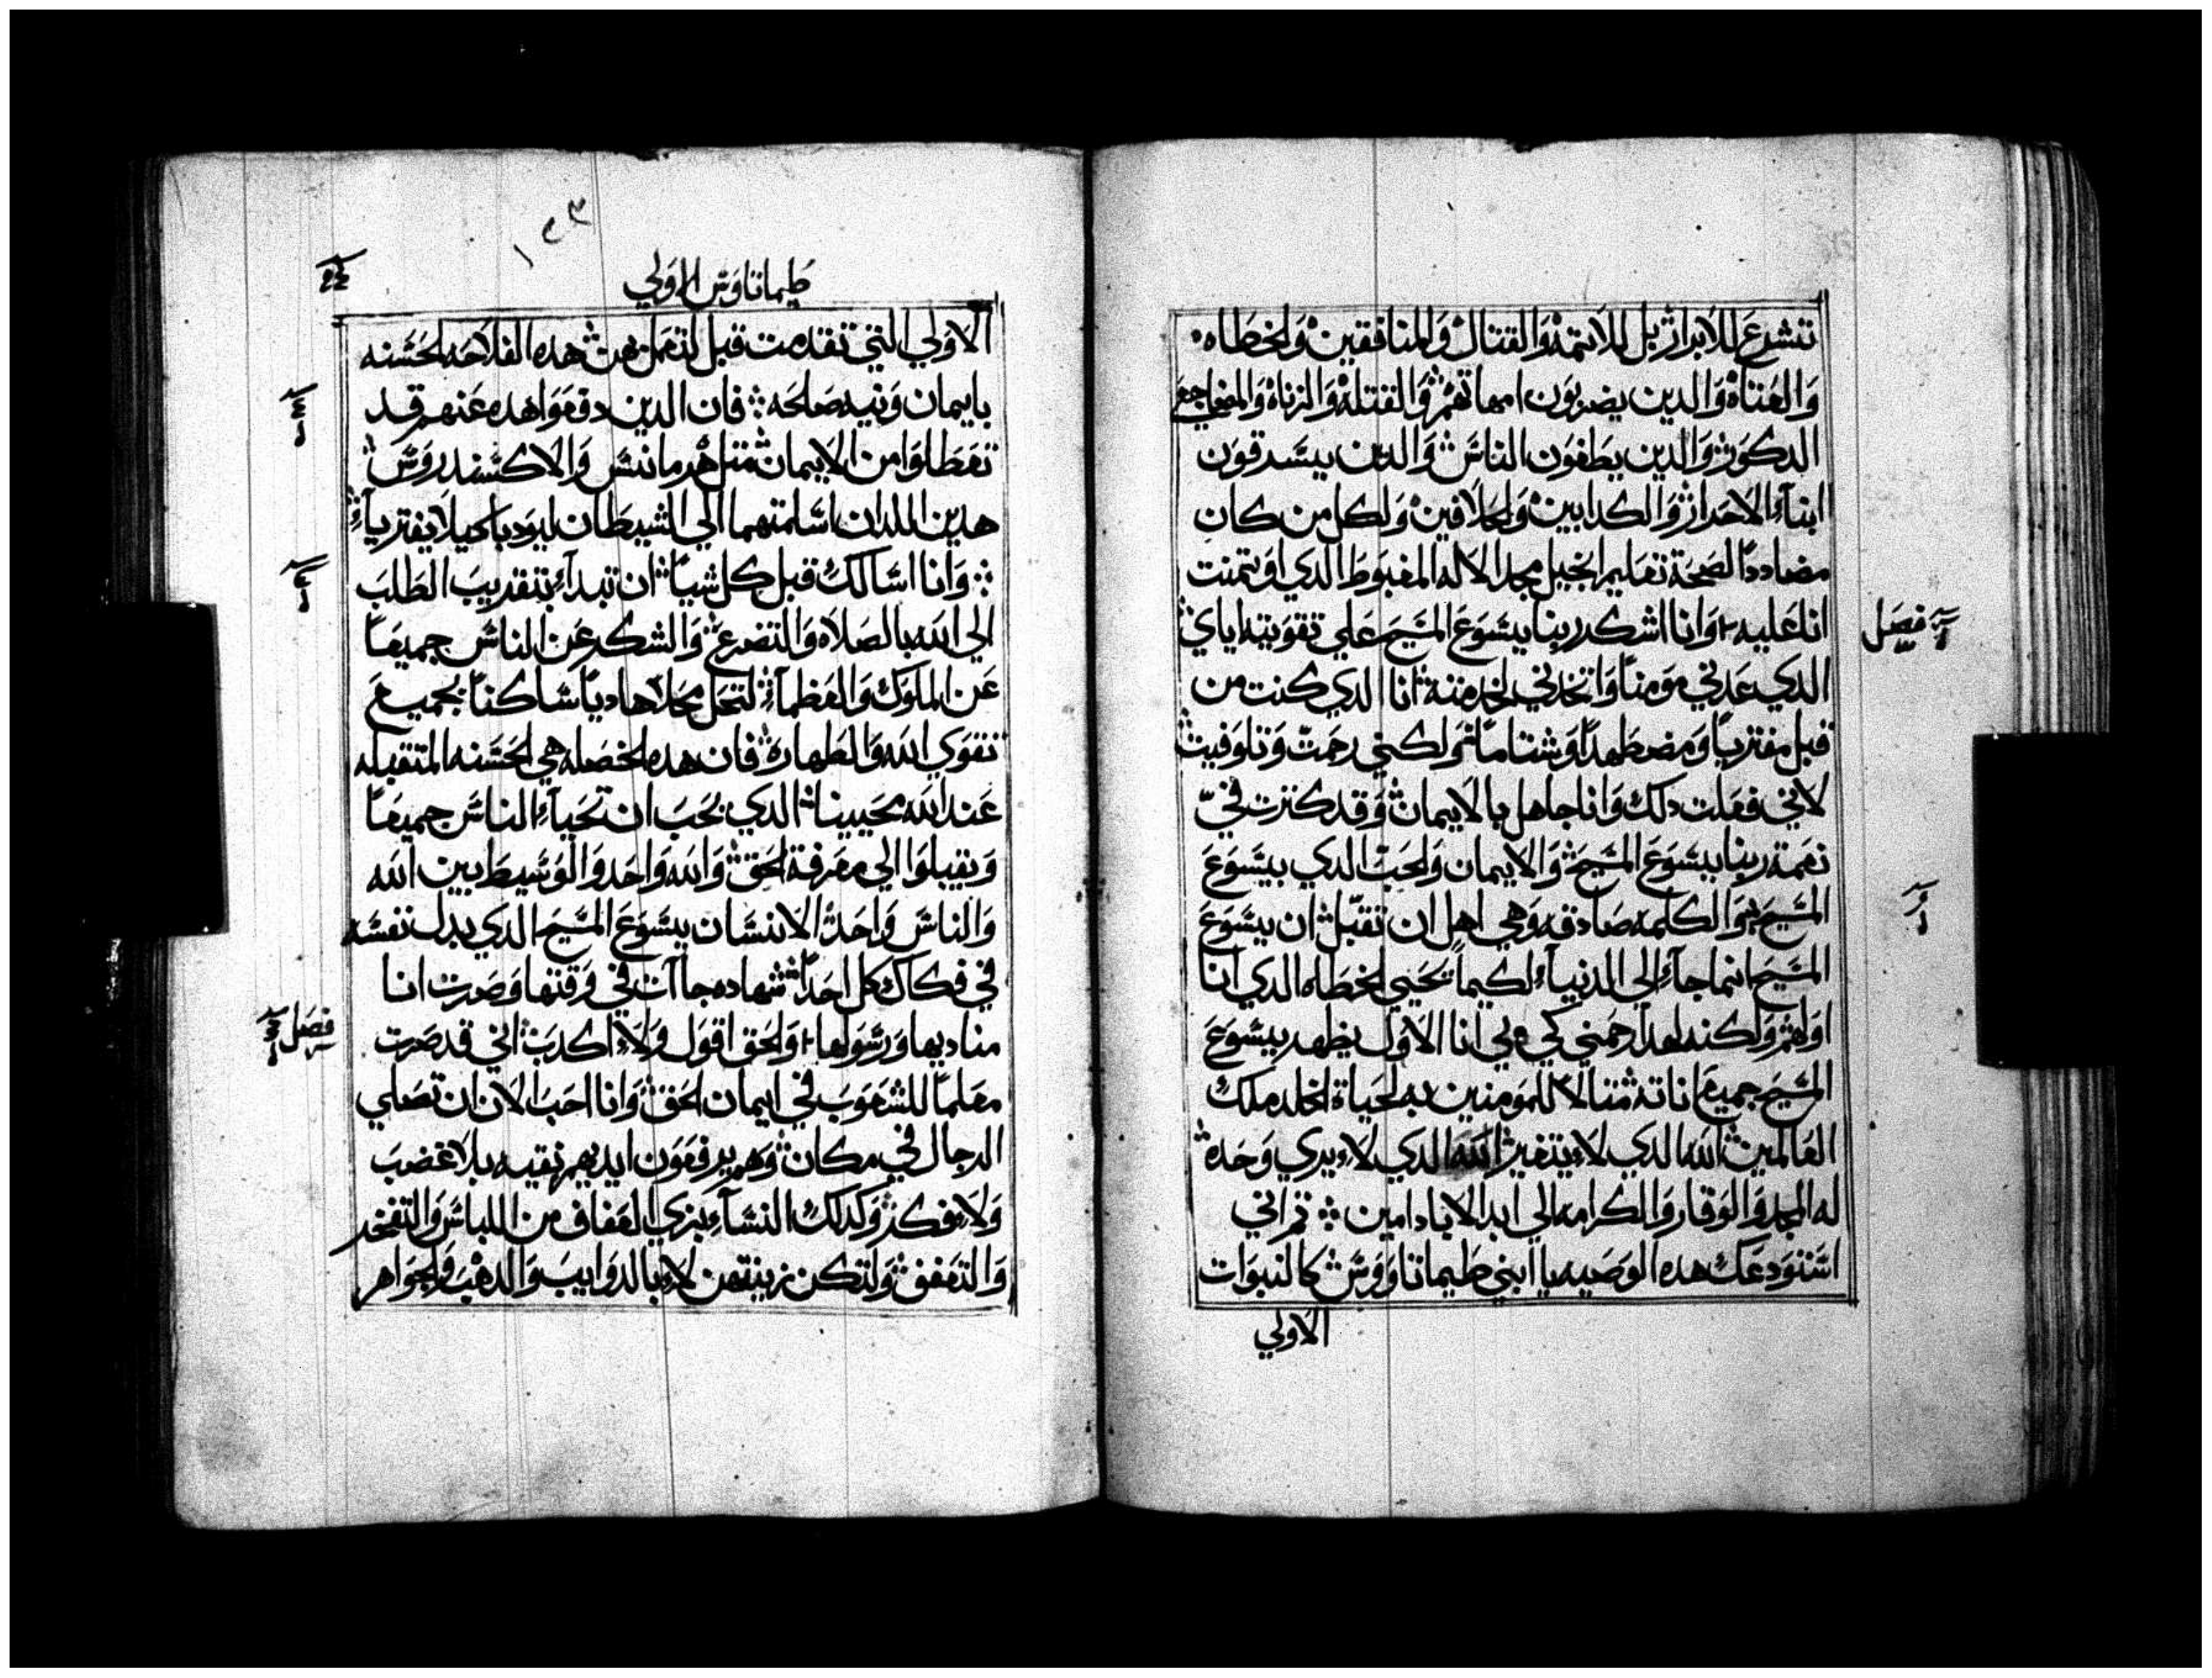 تتشرع للابرار بل للاتمه والقتال والمنافقين والخطاه
والعتاة والدين يضربون امهاتهم والقتله والزناة والمضاجعي
الدكور والدين يطغون الناس والدين يسرقون
ابنآء الاحرار والكدابين والحلافين ولكل من كان
مضاددًا لصحة تعاليم انجيل مجد الاله المغبوط الدي اوتمنت
انا عليه وانا اشكر ربنا يسوع المسيح علي تقويته اياي
فصل
الدي عدني مومنًا واتخدني لخدمته انا الدي كنت من
قبل مفتريًا ومضطهدًا وشتامًا ولكني رحمت وتلوفيت
لاني فعلت دلك وانا جاهل بالايمان وقد كثرت فيّ
نعمة ربنا يسوع المسيح والايمان والحب الدي بيسوع
المسيح والكلمه صادقه وهي اهل ان تقبل ان يسوع
المسيح انما جآء الي الدنيا لكيما يحيي الخطاه الدي انا
اولهم ولكنه لهدا رحمني كي بي انا الاول يظهر يسوع
المسيح جميع اناته مثالاً للمومنين به لحياة الخلد ملك
العالمين الله الدي لا يتغير الله الدي لا يري وحده
له المجد والوقار والكرامه الي ابد الاباد امين ثم اني
استودعك هده الوصيه يا ابني طيماتاووس كالنبوات
الاولي
١٢٣
طيماتاوس الاولي
الاولي التي تقدمت قبل لتعمل بهن هده الفلاحه الحسنه
بايمان ونيه صالحه فان الدين دفعوا هده عنهم قد
تعطلوا من الايمان مثل هرمانس والاكسندروس
هدين اللدان اسلمتهما الي الشيطان ليودبا كيلا يفتريآء
وانا اسالك قبل كل شياً ان تبدآء بتقديب الطلب
الي الله بالصلاه والتضرع والشكر عن الناس جميعاً
عن الملوك والعظمآء لتحل محلاً هادياً ساكناً بجميع
تقوي الله والطهاره فان هده الخصله هي الحسنه المتقبله
عند الله محيينا الدي يحب ان تحيآء الناس جميعاً
ويقبلوا الي معرفة الحق والله واحد والوسيط بين الله
والناس واحد الانسان يسوع المسيح الدي بدل نفسه
في فكاك كل احد شهاده جاآت في وقتها وصرت انا
مناديها ورسولها والحق اقول ولا اكدب اني قد صرت
فصل
معلماً للشعوب في ايمان الحق وانا احب الان ان تصلي
الرجال في مكان وهم يرفعون ايديهم نقيه بلا غضب
ولا فكر وكدلك النسآء بزي العفاف من اللباس والتفخر
والتعفف ولتكن زينتهن لا بالدوايب والدهب والجواهر